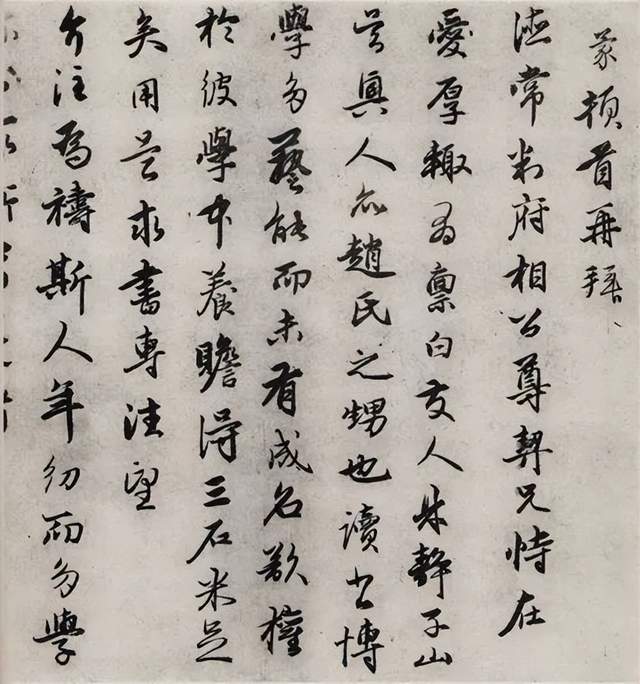 蒙頓首再拜
德常判府相公尊契兄恃在
愛厚輙為稟白友人朱靜子山
吳興人亦趙氏之甥也讀書博
學多藝能而未有成名欲權
於彼學中養贍得三石米足
矣用是求書專注望
介注為禱斯人年幼而多學